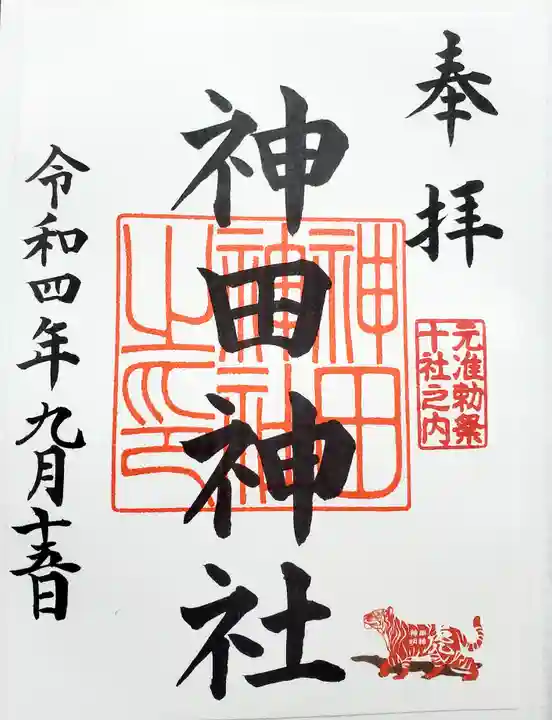 奉拝
元准勅祭
十社之内
神田神社
神田
神社
之印
令和四年九月十五日